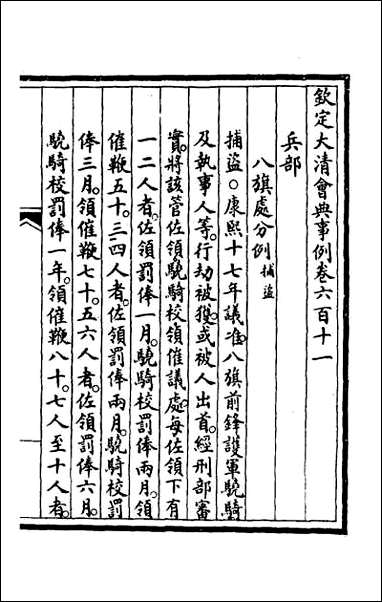 欽定大清會典事例卷六百十一
兵部
八旗處分例捕盜
捕盜○康熙十七年議准八旗前鋒護軍驍騎
及執事人等行劫被獲或被人出首經刑部審
實將該管佐領驍騎校領催議處每佐領下有
一二人者佐領罰俸一月驍騎校罰俸兩月領
催鞭五十三四人者佐領罰俸兩月驍騎校罰
俸三月領催鞭七十五六人者佐領罰俸六月
驍騎校罰俸一年領催鞭八十七人至十人者